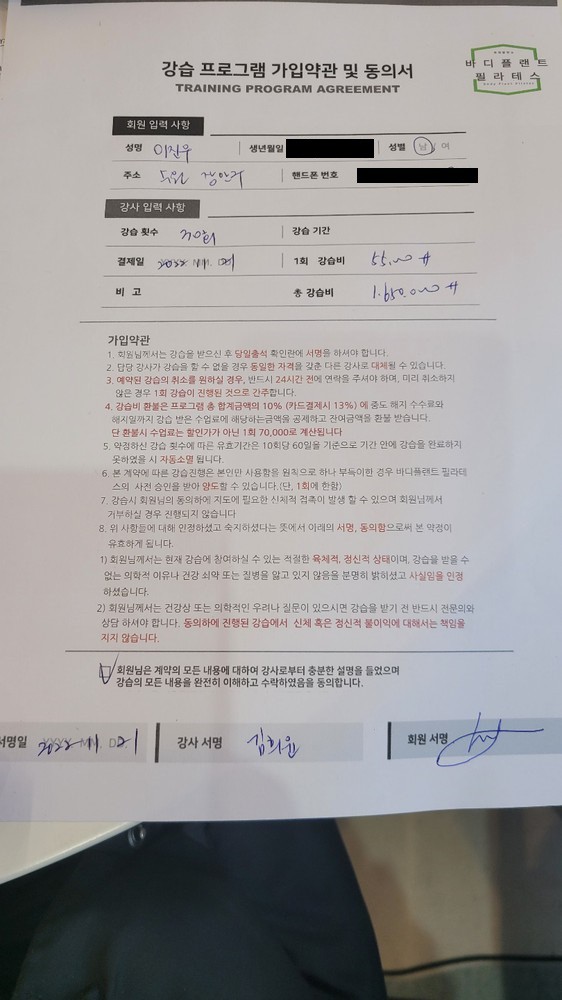 바디플랜트
필라테스
강습 프로그램 가입약관 및 동의서
TRAINING PROGRAM AGREEMENT
회원 입력 사항
성명 이진우 생년월일 성별 남 / 여
주소 핸드폰 번호
강사 입력 사항
강습 횟수 30회 강습 기간
결제일 2022 11. 21 1회 강습비 55,000 #
비 고 총 강습비 1.650.000 #
가입약관
1. 회원님께서는 강습을 받으신 후 당일출석 확인란에 서명을 하셔야 합니다.
2. 담당 강사가 강습을 할 수 없을 경우 동일한 자격을 갖춘 다른 강사로 대체될 수 있습니다.
3. 예약된 강습의 취소를 원하실 경우, 반드시 24시간 전에 연락을 주셔야 하며, 미리 취소하지
않은 경우 1회 강습이 진행된 것으로 간주합니다.
4. 강습비 환불은 프로그램 총 합계금액의 10% (카드결제시 13%) 에 중도 해지 수수료와
해지일까지 강습 받은 수업료에 해당하는금액을 공제하고 잔여금액을 환불 받습니다.
단 환불시 수업료는 할인가가 아닌 1회 70,000로 계산됩니다
5. 약정하신 강습 횟수에 따른 유효기간은 10회당 60일을 기준으로 기간 안에 강습을 완료하지
못하였을 시 자동소멸 됩니다.
6. 본 계약에 따른 강습진행은 본인만 사용함을 원칙으로 하나 부득이한 경우 바디플랜트 필라테
스의 사전 승인을 받아 양도할 수 있습니다.(단, 1회에 한함)
7. 강습시 회원님의 동의하에 지도에 필요한 신체적 접촉이 발생 할 수 있으며 회원님께서
거부하실 경우 진행되지 않습니다
8. 위 사항들에 대해 인정하셨고 숙지하셨다는 뜻에서 아래의 서명, 동의함으로써 본 약정이
유효하게 됩니다.
1) 회원님께서는 현재 강습에 참여하실 수 있는 적절한 육체적, 정신적 상태이며, 강습을 받을 수
없는 의학적 이유나 건강 쇠약 또는 질병을 앓고 있지 않음을 분명히 밝히셨고 사실임을 인정
하셨습니다.
2) 회원님께서는 건강상 또는 의학적인 우려나 질문이 있으시면 강습을 받기 전 반드시 전문의와
상담 하셔야 합니다. 동의하에 진행된 강습에서 신체 혹은 정신적 불이익에 대해서는 책임을
지지 않습니다.
회원님은 계약의 모든 내용에 대하여 강사로부터 충분한 설명을 들었으며
강습의 모든 내용을 완전히 이해하고 수락하였음을 동의합니다.
서명일 2022 11. 21 강사 서명 김희윤 회원 서명